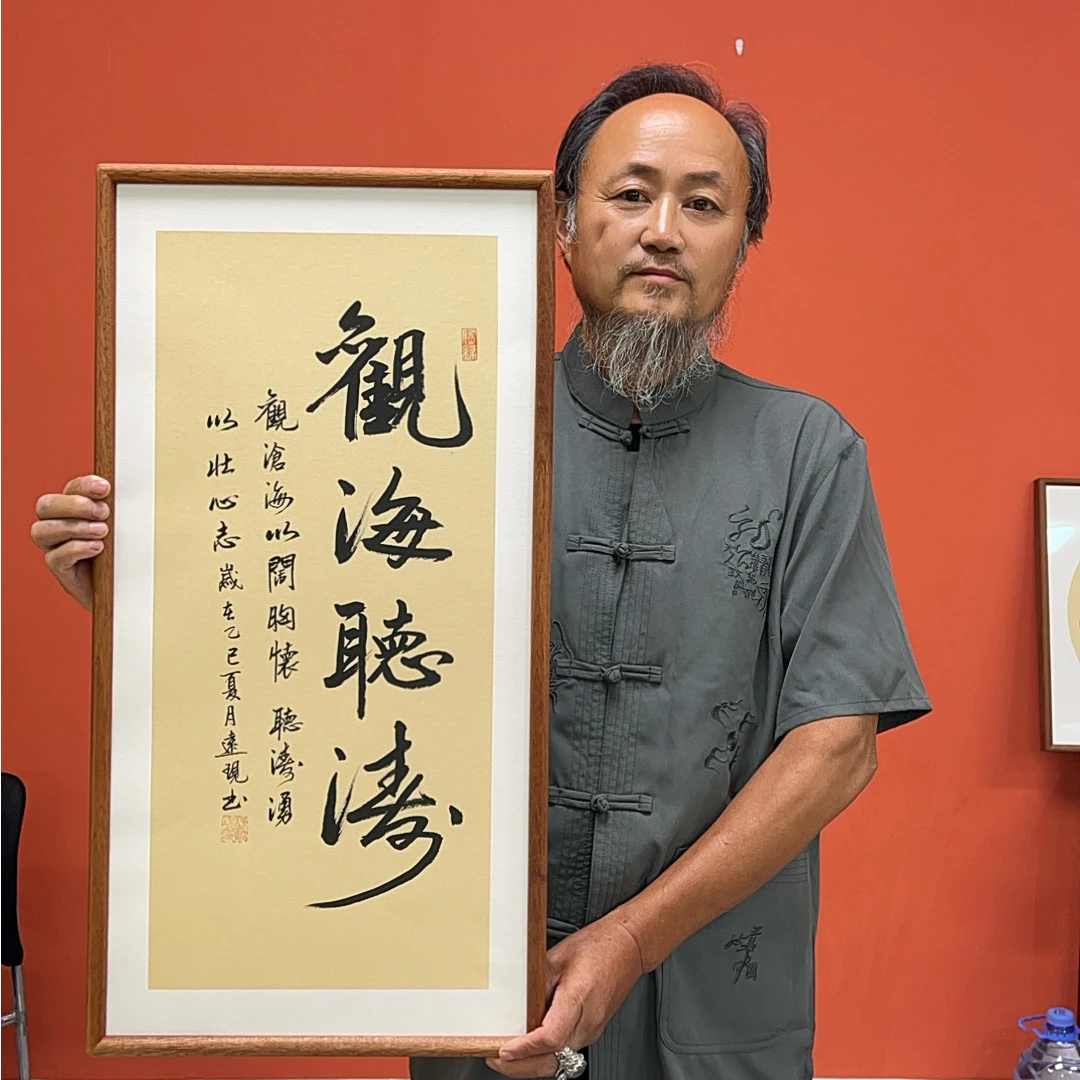 觀海聽濤
觀滄海以闊胸懷聽濤湧
以壯心志歲在乙巳夏月遠現书